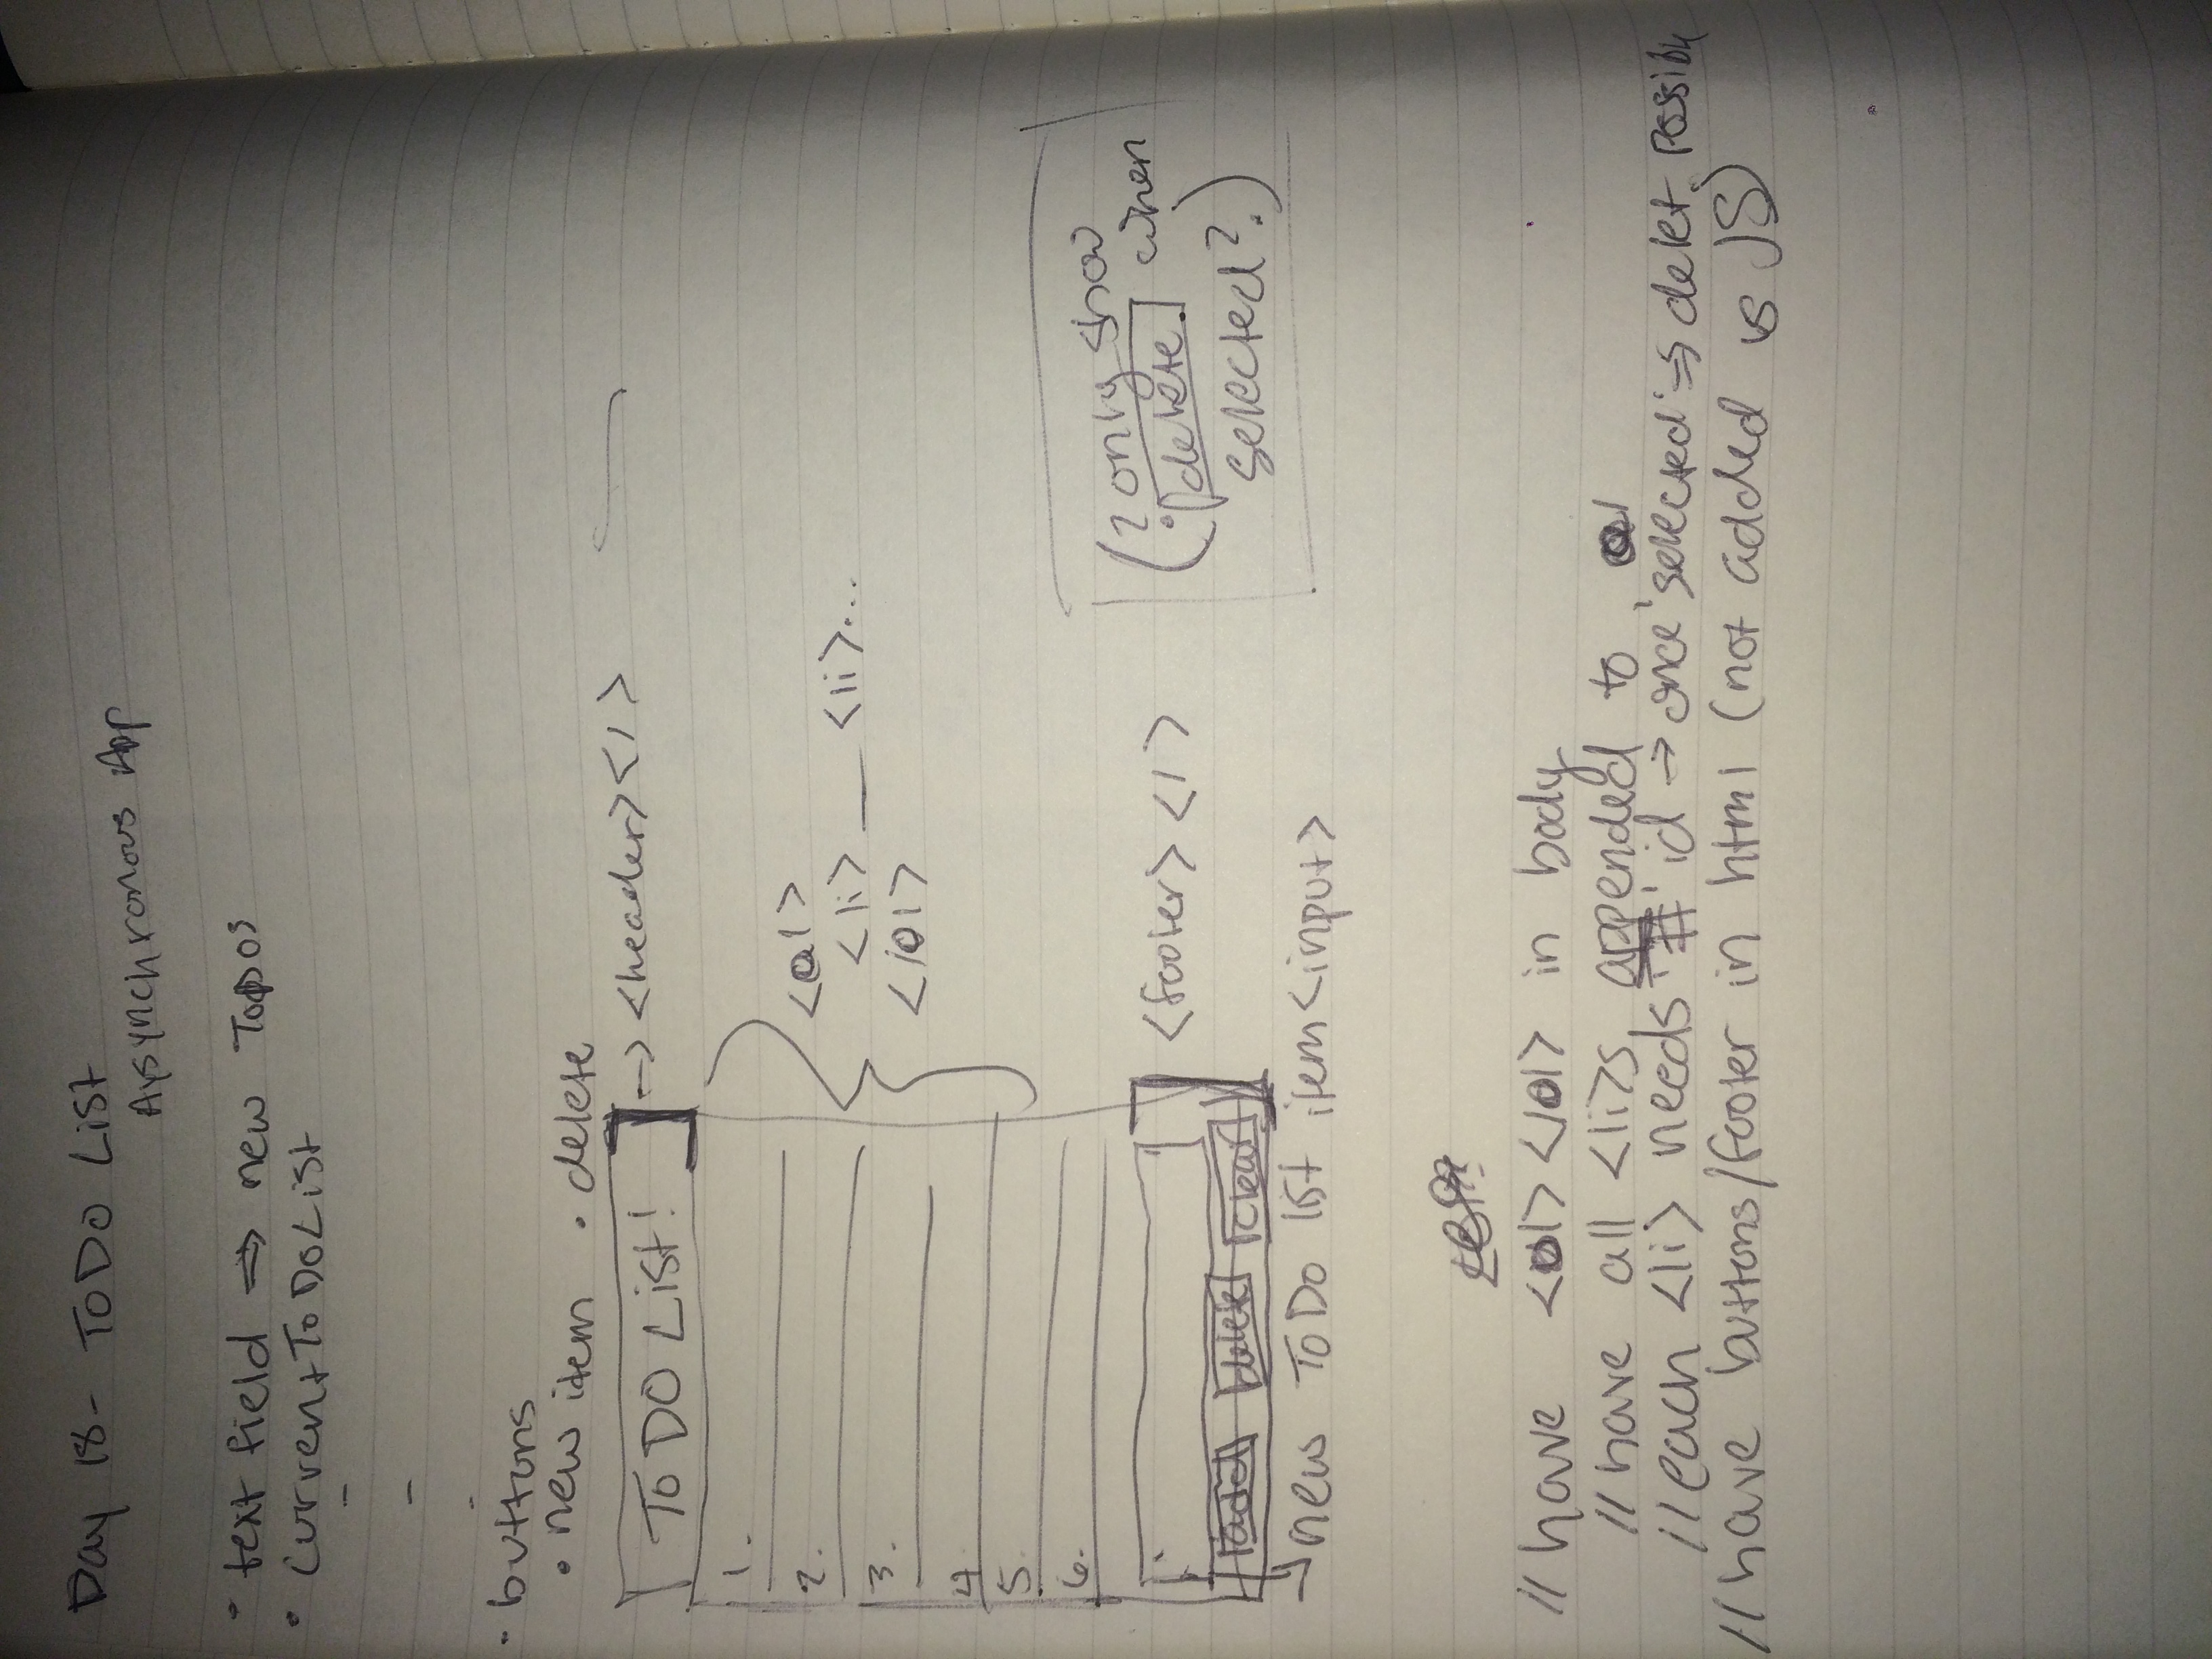 Day 18- ToDo List
Aysynchronous App
• text field ⇒ new ToDos
• CurrentToDoList
-
-
-
- buttons
• new item • delete
ToDO List! -> <header></>
1.
2.
3.
4
5.
6.
<ol>
<li> __ <li>...
</ol>
<footer></>
add delete clear
(? only show
• delete. when
selected?.)
new ToDo list item <input>
// have <ol></ol> in body
// have all <li>s appended to ol
// each <li> needs '#' id → once 'selected' ⇒ delet. possible
// have buttons/footer in html (not added vs JS)